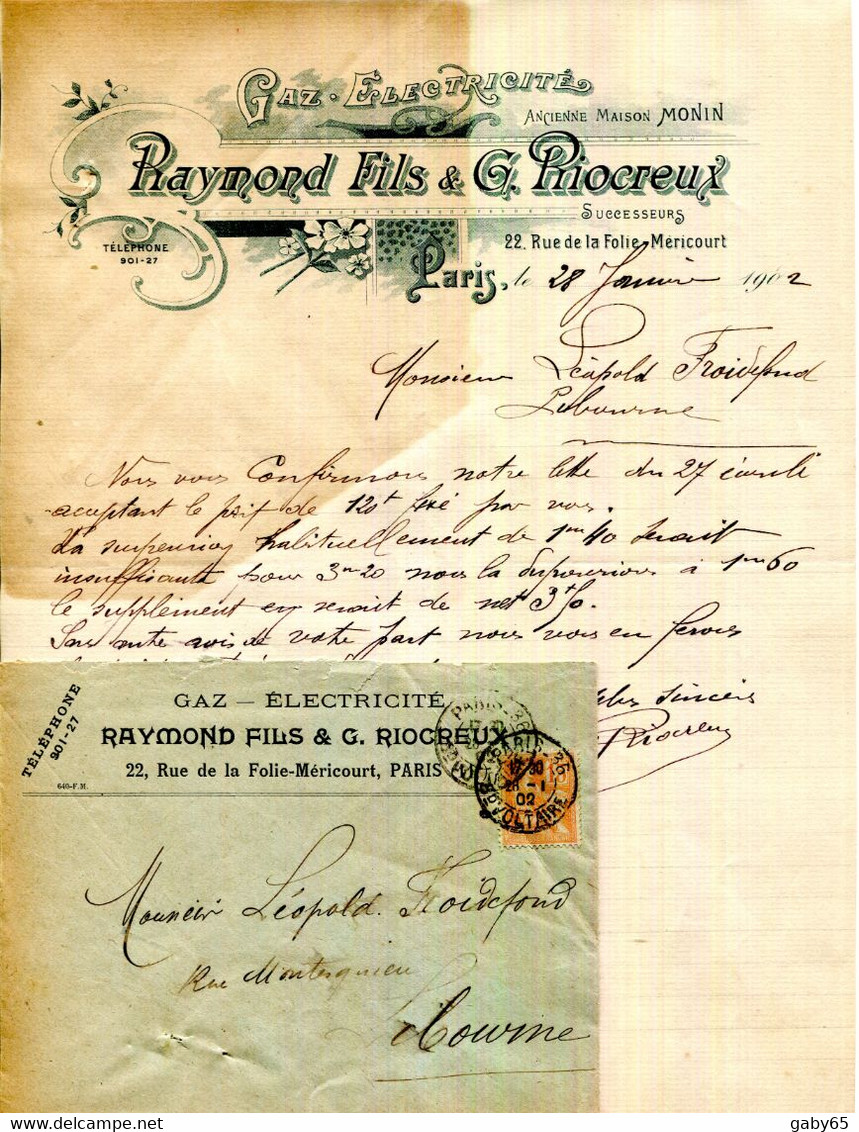 GAZ - ELECTRICITÉ
ANCIENNE MAISON MONIN
Raymond Fils & G. Riocreux
SUCCESSEURS
TÉLÉPHONE
901-27
22, Rue de la Folie-Méricourt
Paris, le 28 Janvier 1902
Monsieur Léopold Froidefond
Libourne
Nous vous Confirmons notre lettre du 27 écoulé
acceptant le prix de 120f fixé par vous.
La suspension habituellement de 1m40 serait
insuffisante pour 3m20 nous la à 1m60
le supplément en serait de net 3f50.
Sans autre avis de votre part nous vous en ferons
plus sincères
Riocreux
TÉLÉPHONE
901-27
GAZ — ÉLECTRICITÉ
RAYMOND FILS & G. RIOCREUX
22, Rue de la Folie-Méricourt, PARIS
640-F.M.
PARIS-36
PARIS-36
17 30
28 - 1
02
BD VOLTAIRE
15
Monsieur Léopold Froidefond
Rue Montesquieu
Libourne
gaby65